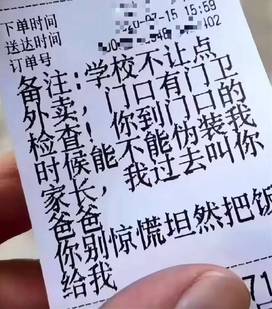 下单时间
送达时间
订单号
-07-15 15:59
402
备注:学校不让点
外卖,门口有门卫
检查!你到门口的
时候能不能伪装我
家长,我过去叫你
爸爸
你别惊慌坦然把饭
给我
71